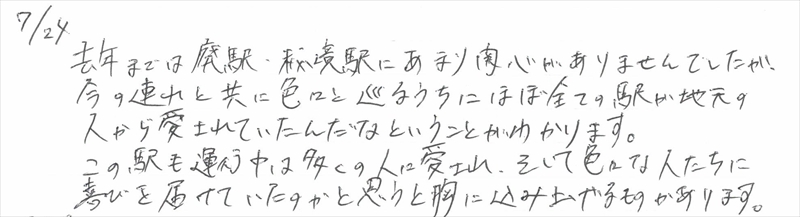 7/24
去年までは廃駅・秘境駅にあまり関心がありませんでしたが、
今の連れと共に色々と巡るうちにほぼ全ての駅が地元の
人から愛されていたんだなということがわかります。
この駅も運行中は多くの人に愛され、そして色々な人たちに
喜びを届けていたのかと思うと胸に込み上げるものがあります。